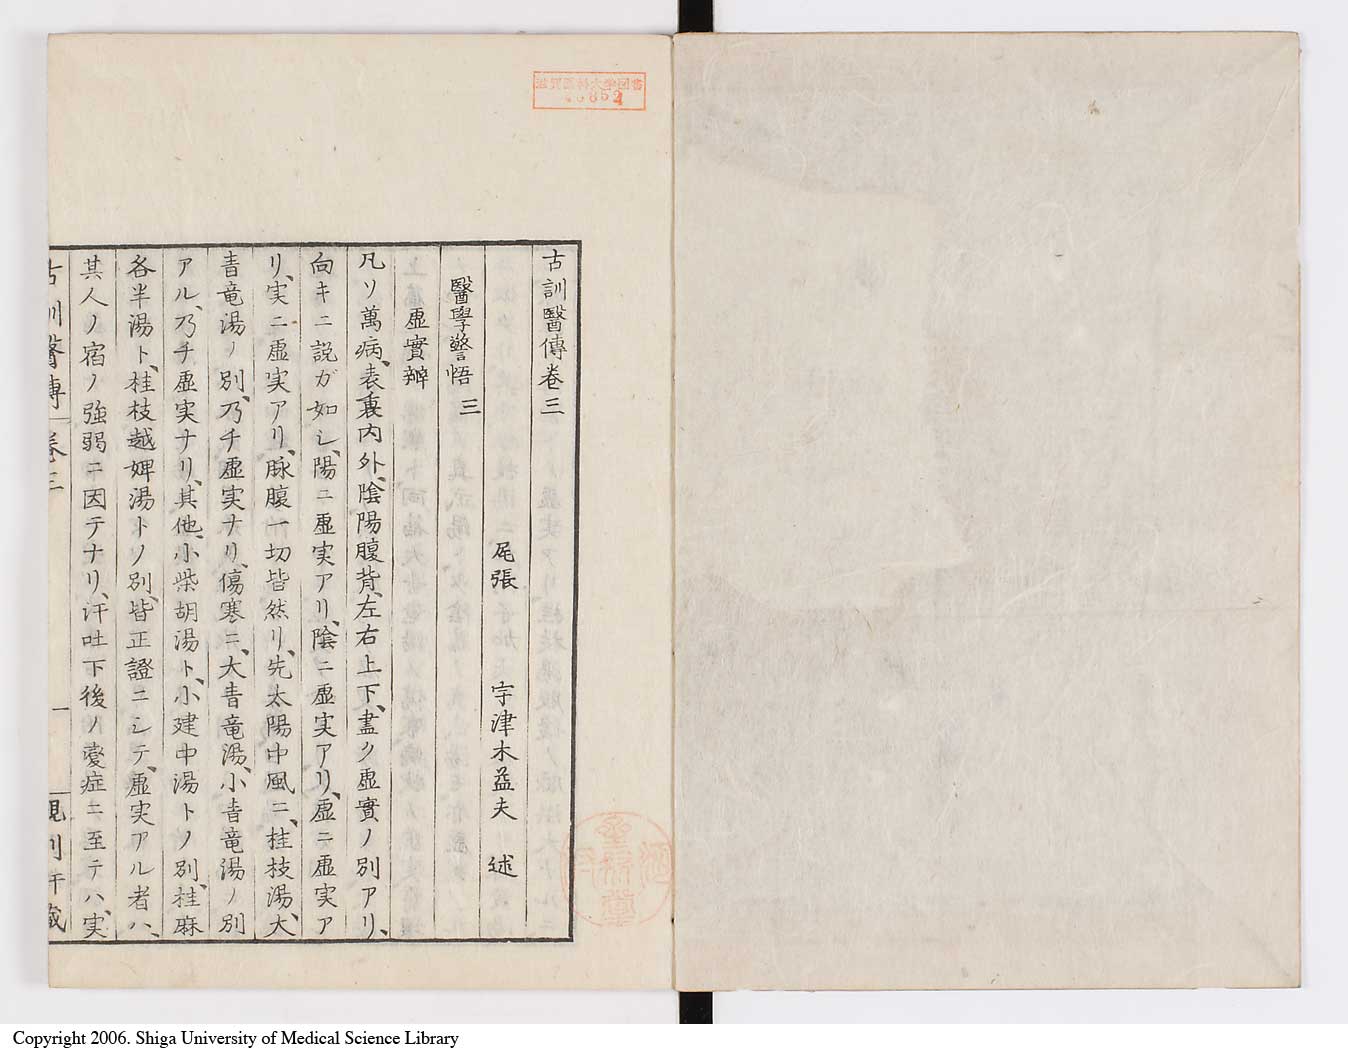 古訓醫傳卷三
尾張 宇津木益夫 述
醫學警悟 三
虛實辨
凡ソ萬病、表裏内外、陰陽腹背、左右上下、盡ク虛實ノ別アリ、
向キニ説ガ如シ、陽ニ虛実アリ、陰ニ虛実アリ、虛ニ虛実ア
リ、実ニ虛実アリ、脉腹一切皆然リ、先太陽中風ニ、桂枝湯、大
青竜湯ノ別、乃チ虛実ナリ、傷寒ニ、大青竜湯、小青竜湯ノ別
アル、乃チ虛実ナリ、其他、小柴胡湯ト、小建中湯トノ別、桂麻
各半湯ト、桂枝越婢湯トノ別、皆正證ニシテ、虛実アル者ハ、
其人ノ宿ノ強弱ニ因テナリ、汗吐下後ノ変症ニ至テハ、実
古訓醫傳 卷三 一
滋賀医科大学図書
Copyright 2006. Shiga University of Medical Science Library